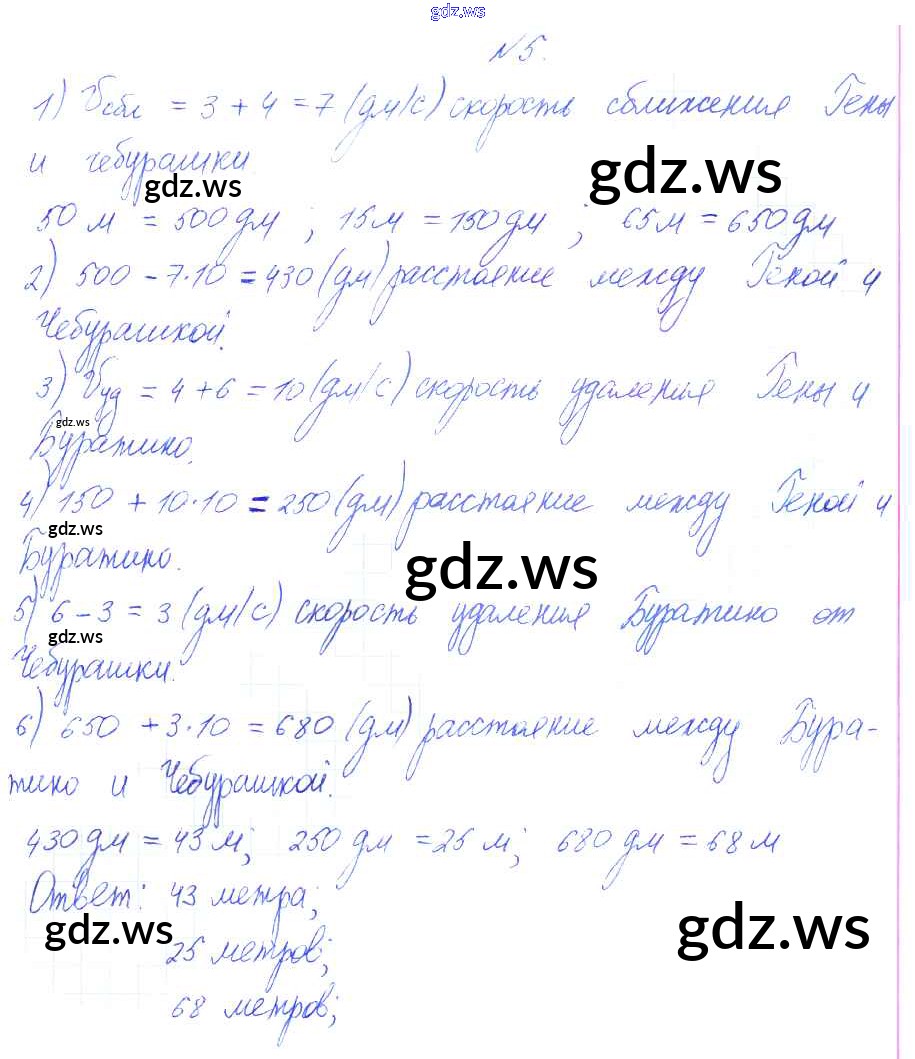 gdz.ws
№5.
1) Vсбл = 3 + 4 = 7 (дм/с) скорость сближения Гены
и чебурашки.
gdz.ws
gdz.ws
50 м = 500 дм ; 15 м = 150 дм ; 65 м = 650 дм
2) 500 - 7·10 = 430 (дм) расстояние между Геной и
Чебурашкой.
3) Vуд = 4 + 6 = 10 (дм/с) скорость удаления Гены и
gdz.ws
Буратино.
4) 150 + 10·10 = 250 (дм) расстояние между Геной и
gdz.ws
Буратино.
gdz.ws
5) 6 - 3 = 3 (дм/с) скорость удаления Буратино от
gdz.ws
Чебурашки.
6) 650 + 3·10 = 680 (дм) расстояние между Бура-
тино и Чебурашкой.
430 дм = 43 м; 250 дм = 25 м; 680 дм = 68 м
Ответ: 43 метра;
gdz.ws
gdz.ws
25 метров;
68 метров;